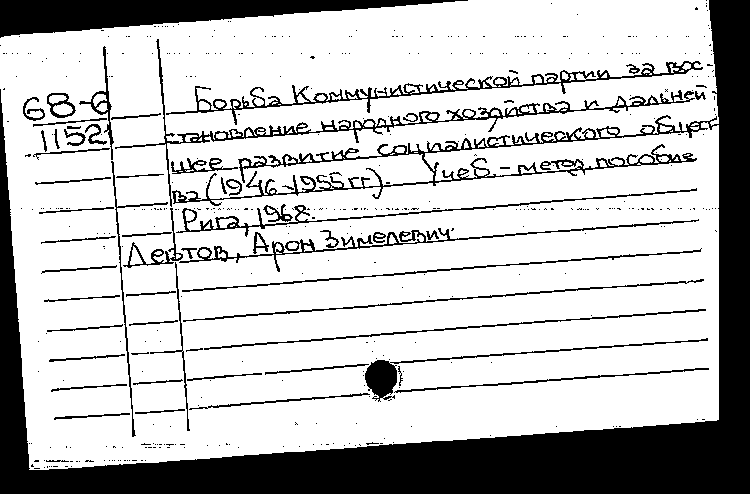 68-6
11521
Борьба Коммунистической партии за вос-
становление народного хозяйства и дальней-
шее развитие социалистического общест
ва (1946-1955 гг). Учеб.-метод. пособие
Рига, 1968.
Левтов, Арон Зимелевич